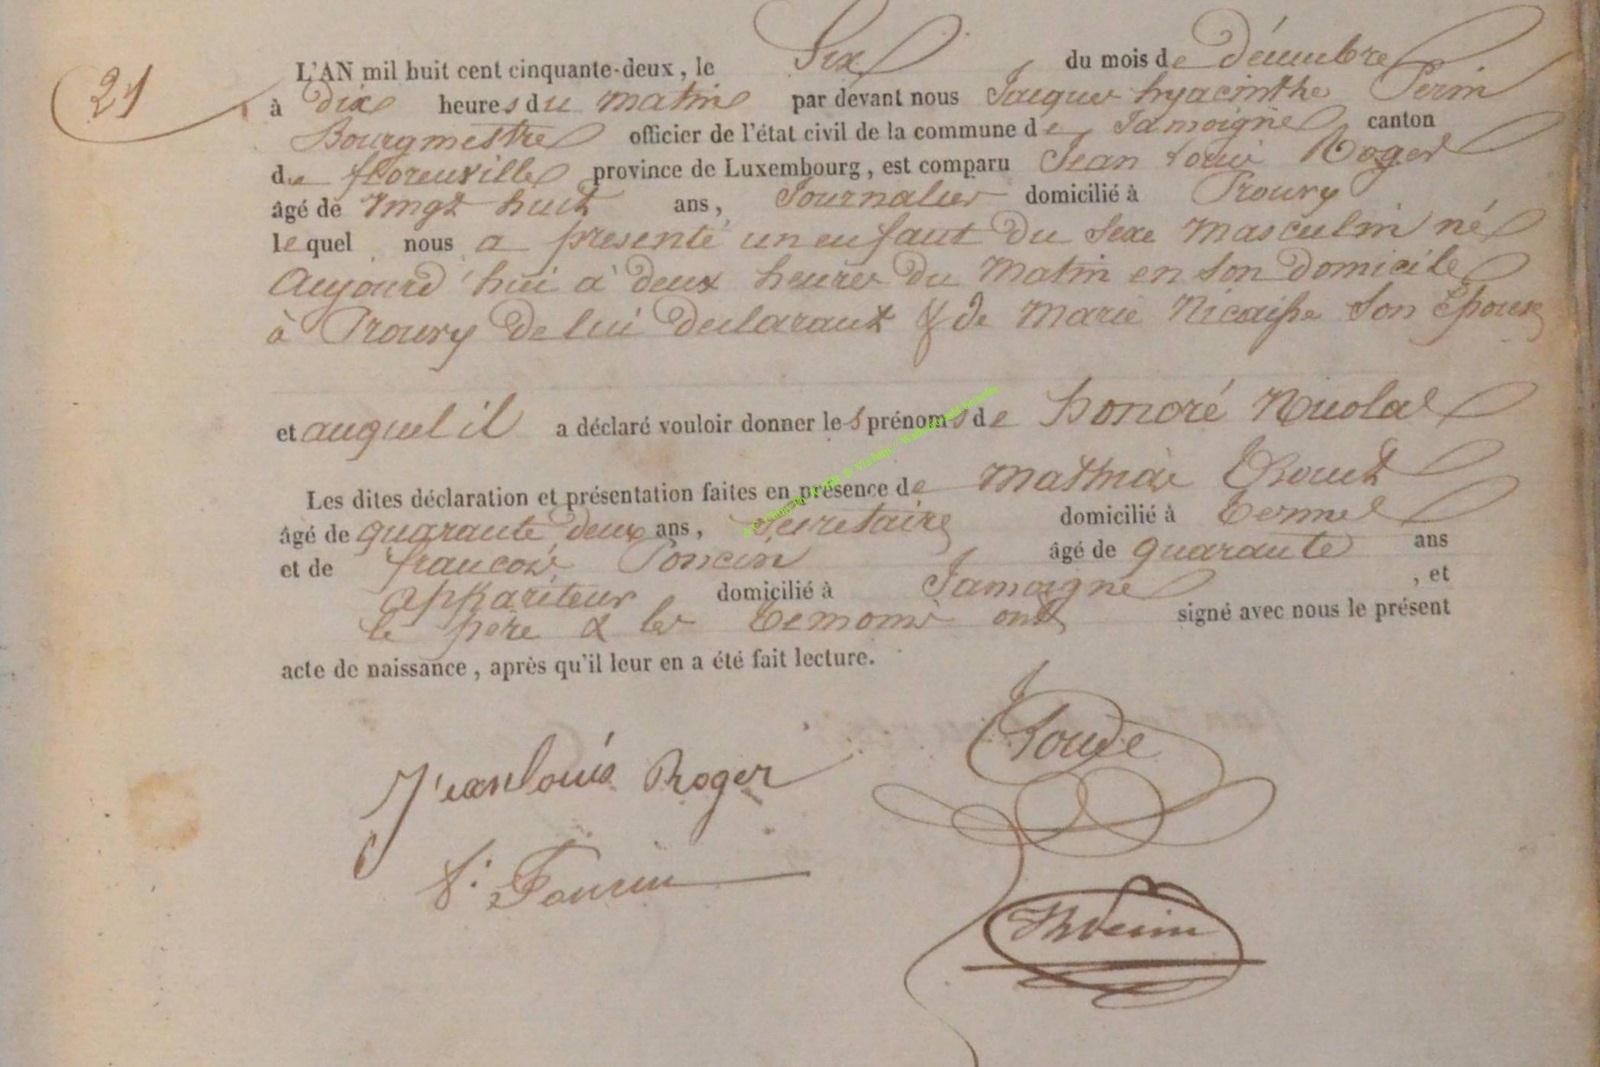 21
L'AN mil huit cent cinquante-deux, le Six du mois de décembre
à dix heures du matin par devant nous Jacques hyacinthe Perin
Bourgmestre officier de l'état civil de la commune de Jamoigne canton
de florenville province de Luxembourg, est comparu Jean Louis Roger
âgé de vingt huit ans, Journalier domicilié à Prouvy
lequel nous a présenté un enfant du sexe masculin né
Aujourd'hui à deux heures du matin en son domicile
à Prouvy de lui déclarant & de Marie Nicaisse son épouse
et auquel il a déclaré vouloir donner les prénoms de honoré Nicolas
Les dites déclaration et présentation faites en présence de Mathias
âgé de quarante deux ans, Secrétaire domicilié à termes
et de françois Poncin âgé de quarante ans
appariteur domicilié à Jamoigne, et
le père & les témoins ont signé avec nous le présent
acte de naissance, après qu'il leur en a été fait lecture.
Jean louis Roger